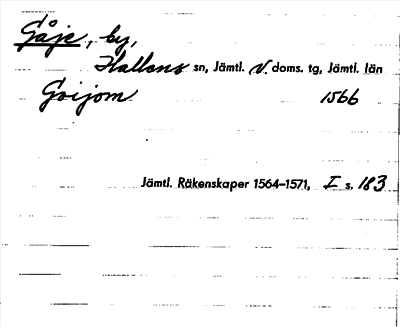 Gåje, by,
Hallens sn, Jämtl. V. doms. tg, Jämtl. län
Goijom 1566
Jämtl. Räkenskaper 1564–1571, I s. 183